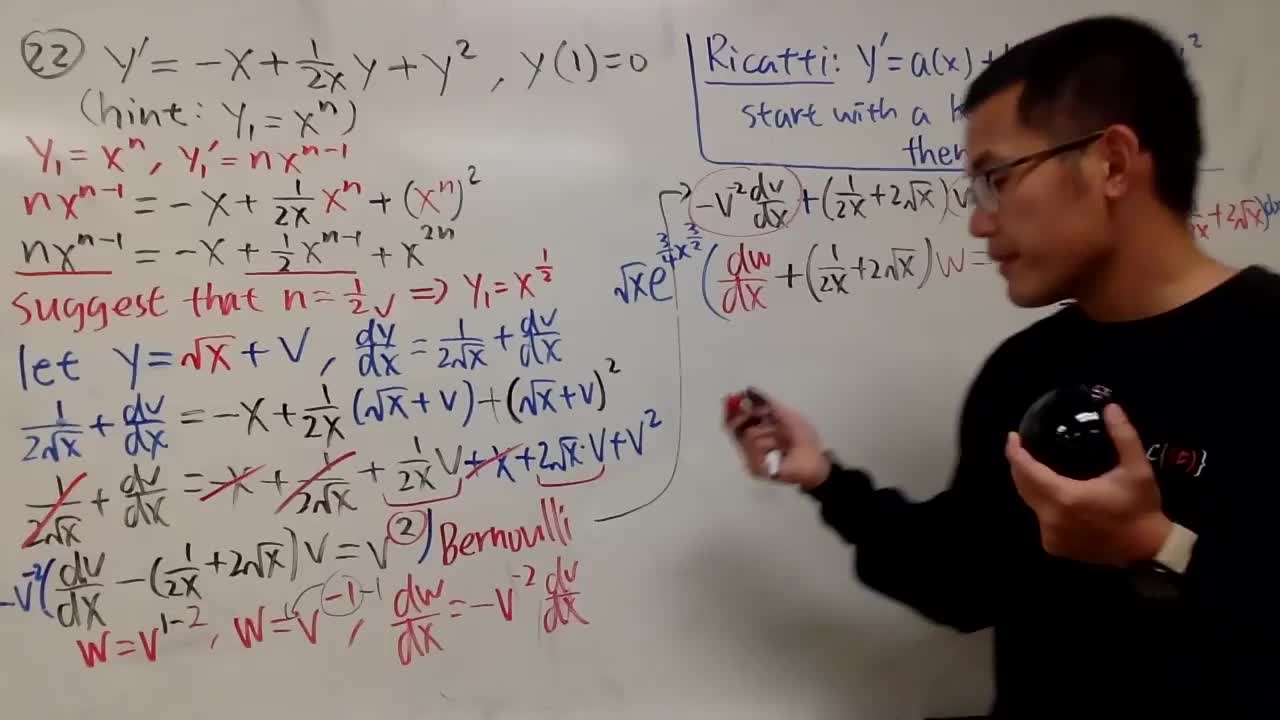 22 y' = -x + 1/2x y + y², y(1)=0
(hint: y₁ = xⁿ)
y₁ = xⁿ, y₁' = nxⁿ⁻¹
nxⁿ⁻¹ = -x + 1/2x xⁿ + (xⁿ)²
nxⁿ⁻¹ = -x + 1/2 xⁿ⁻¹ + x²ⁿ
suggest that n = 1/2 ✓ ⇒ y₁ = x^(1/2)
let y = √x + v, dy/dx = 1/2√x + dv/dx
1/2√x + dv/dx = -x + 1/2x (√x + v) + (√x + v)²
1/2√x + dv/dx = -x + 1/2√x + 1/2x v + x + 2√x·v + v²
-v⁻²(dv/dx - (1/2x + 2√x)v = v²) Bernoulli
w = v¹⁻², w = v⁻¹, dw/dx = -v⁻² dv/dx
Ricatti: y' = a(x) +
start with a
then
-v⁻² dv/dx + (1/2x + 2√x)v
+ 2√x)dx
√x e^(3/4 x^(3/2)) (dw/dx + (1/2x + 2√x)w =